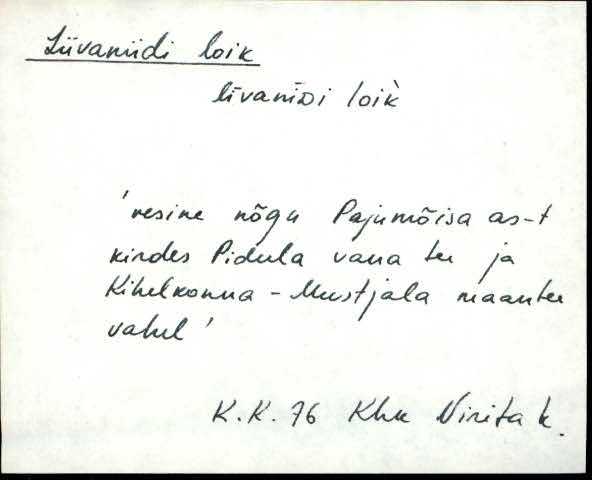 Liivaniidi loik
līvanīDi loik̀
'vesine nõgu Pajumõisa as-t
kirdes Pidula vana tee ja
Kihelkonna - Mustjala maantee
vahel'
K.K. 76 Khk Virita k.